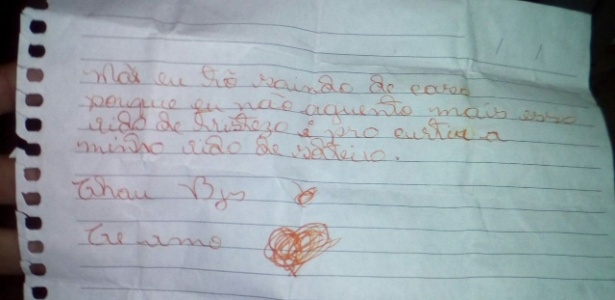 mãe eu tô saindo de casa
porque eu não aguento mais essa
vida de tristeza é pra curtir a
minha vida de solteiro.
Tchau Bjs
Te amo